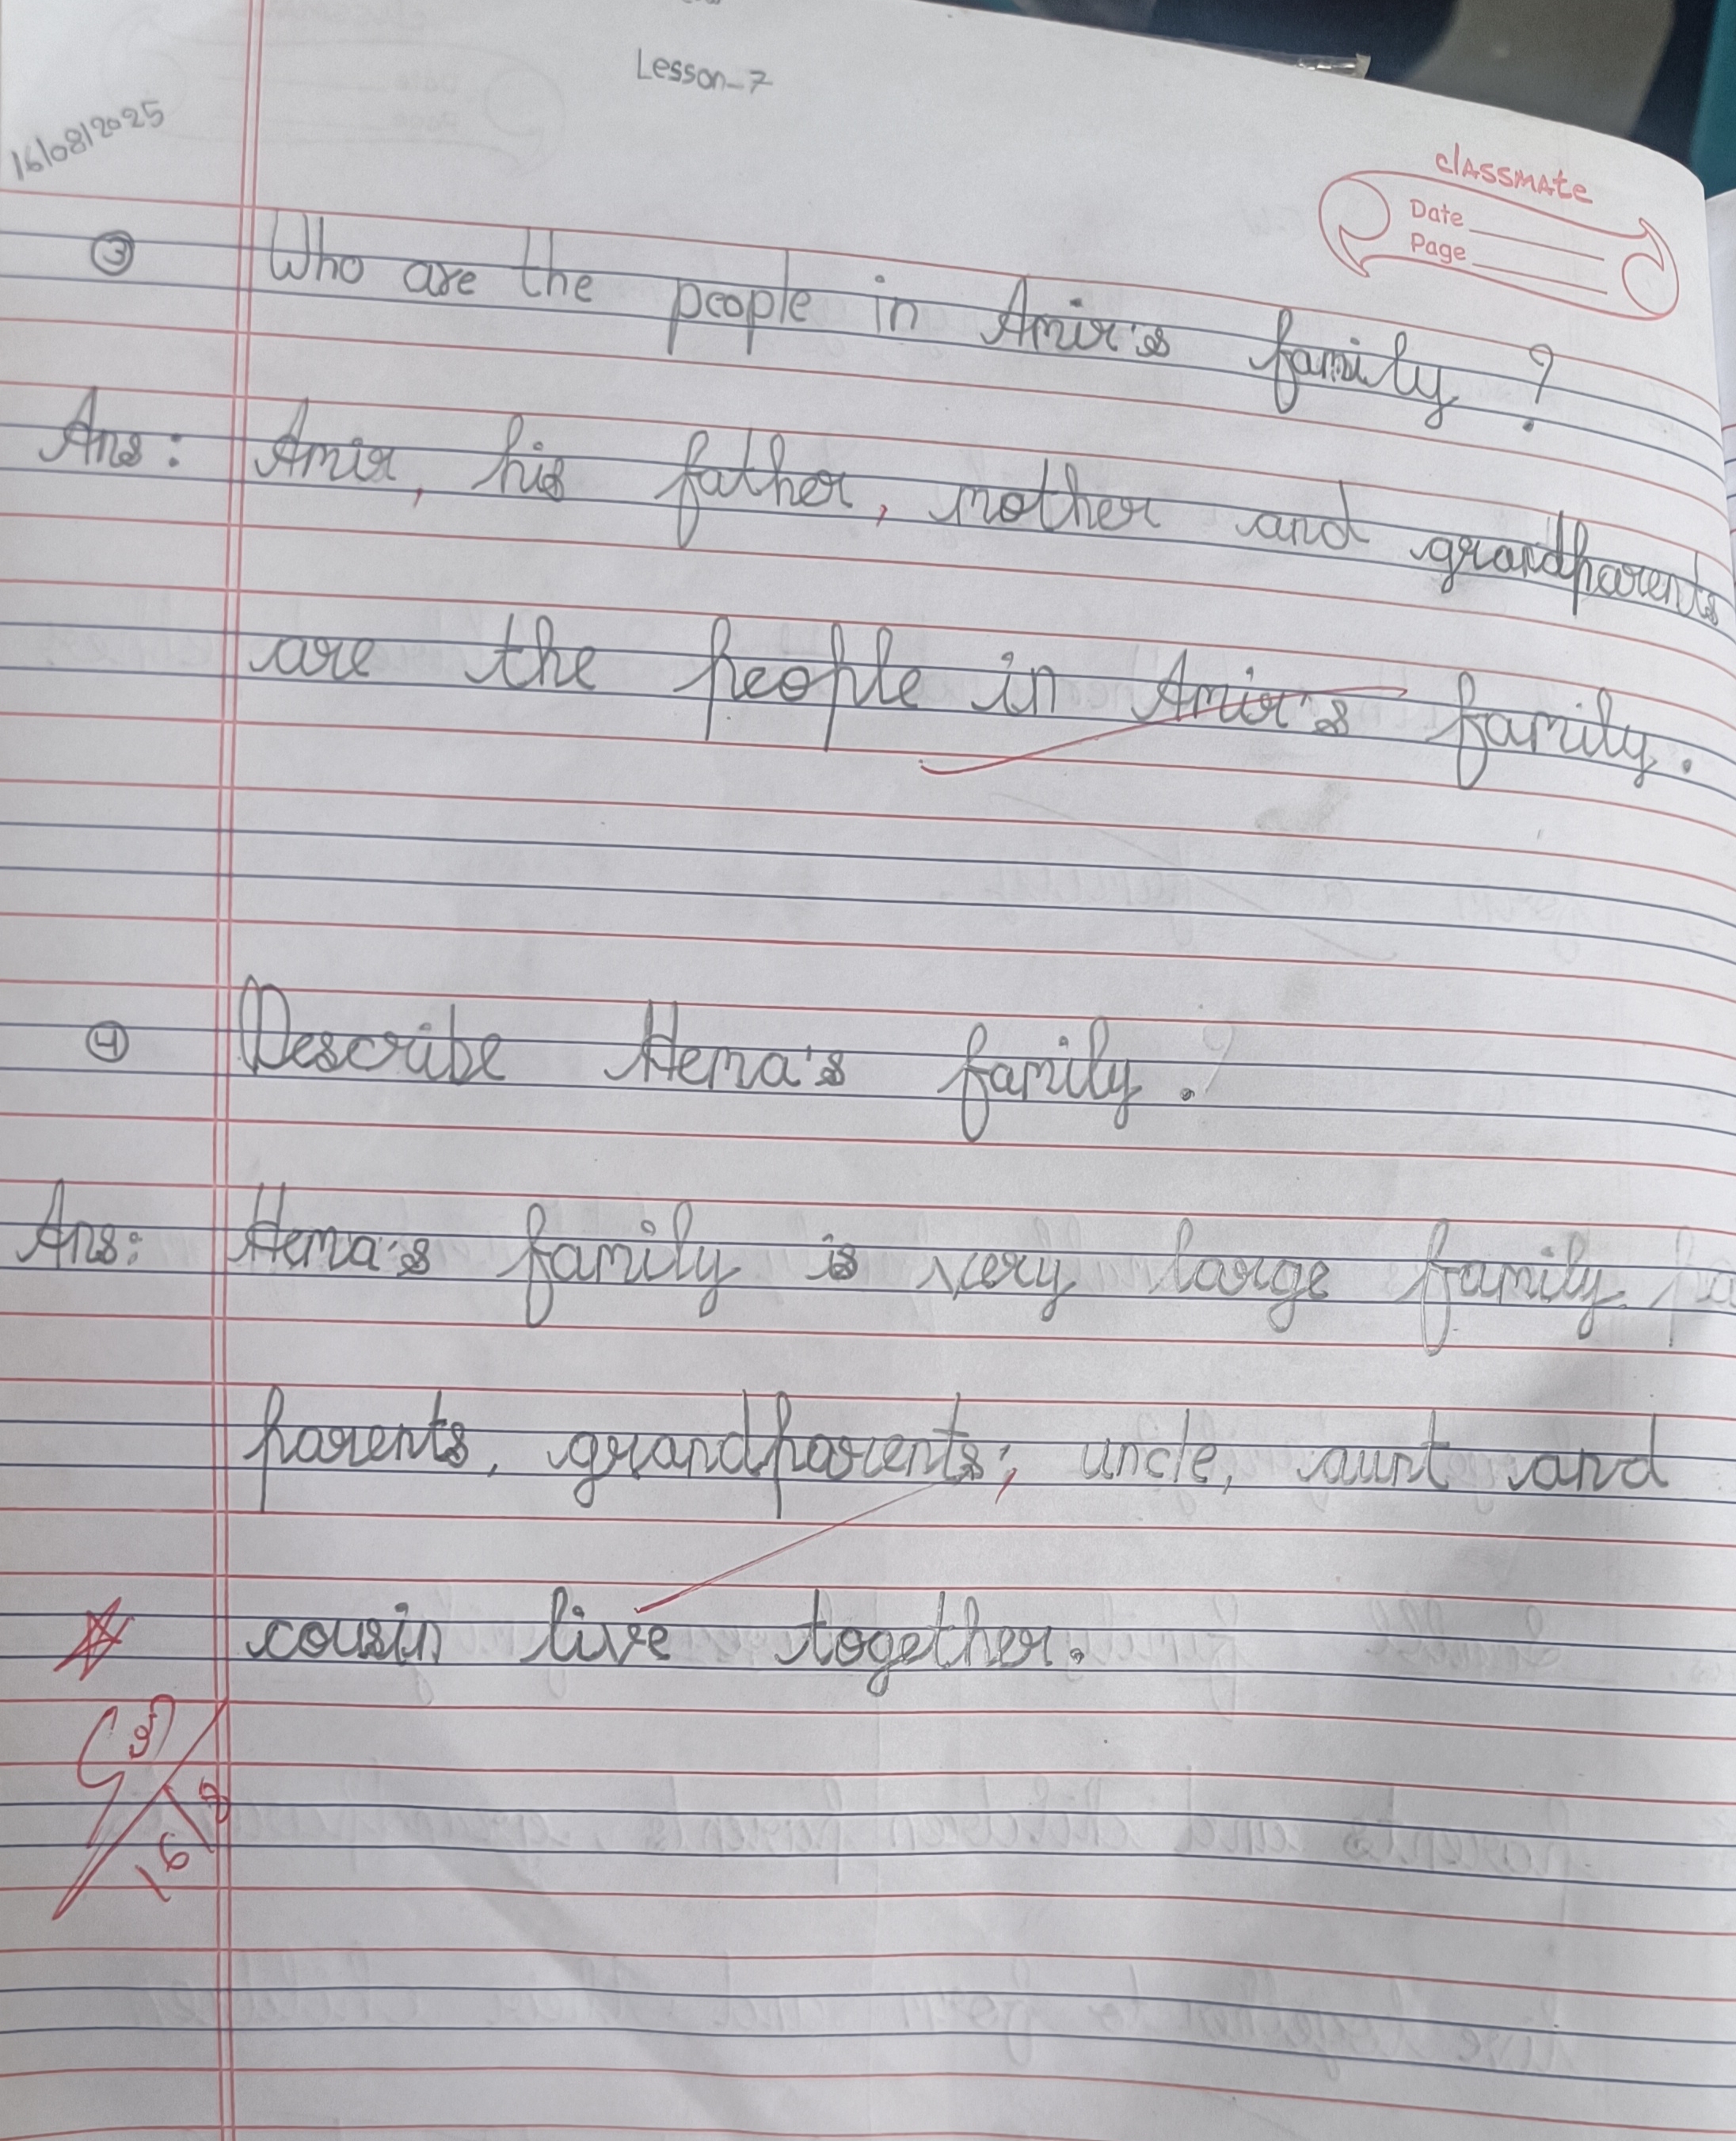 Lesson-7
16/08/2025
classmate
Date
Page
③ Who are the people in Amir's family ?
Ans: Amir, his father, mother and grandparents
are the people in Amir's family.
④ Describe Hema's family.
Ans: Hema's family is very large family.
parents, grandparents, uncle, aunt and
cousin live together.
16 8